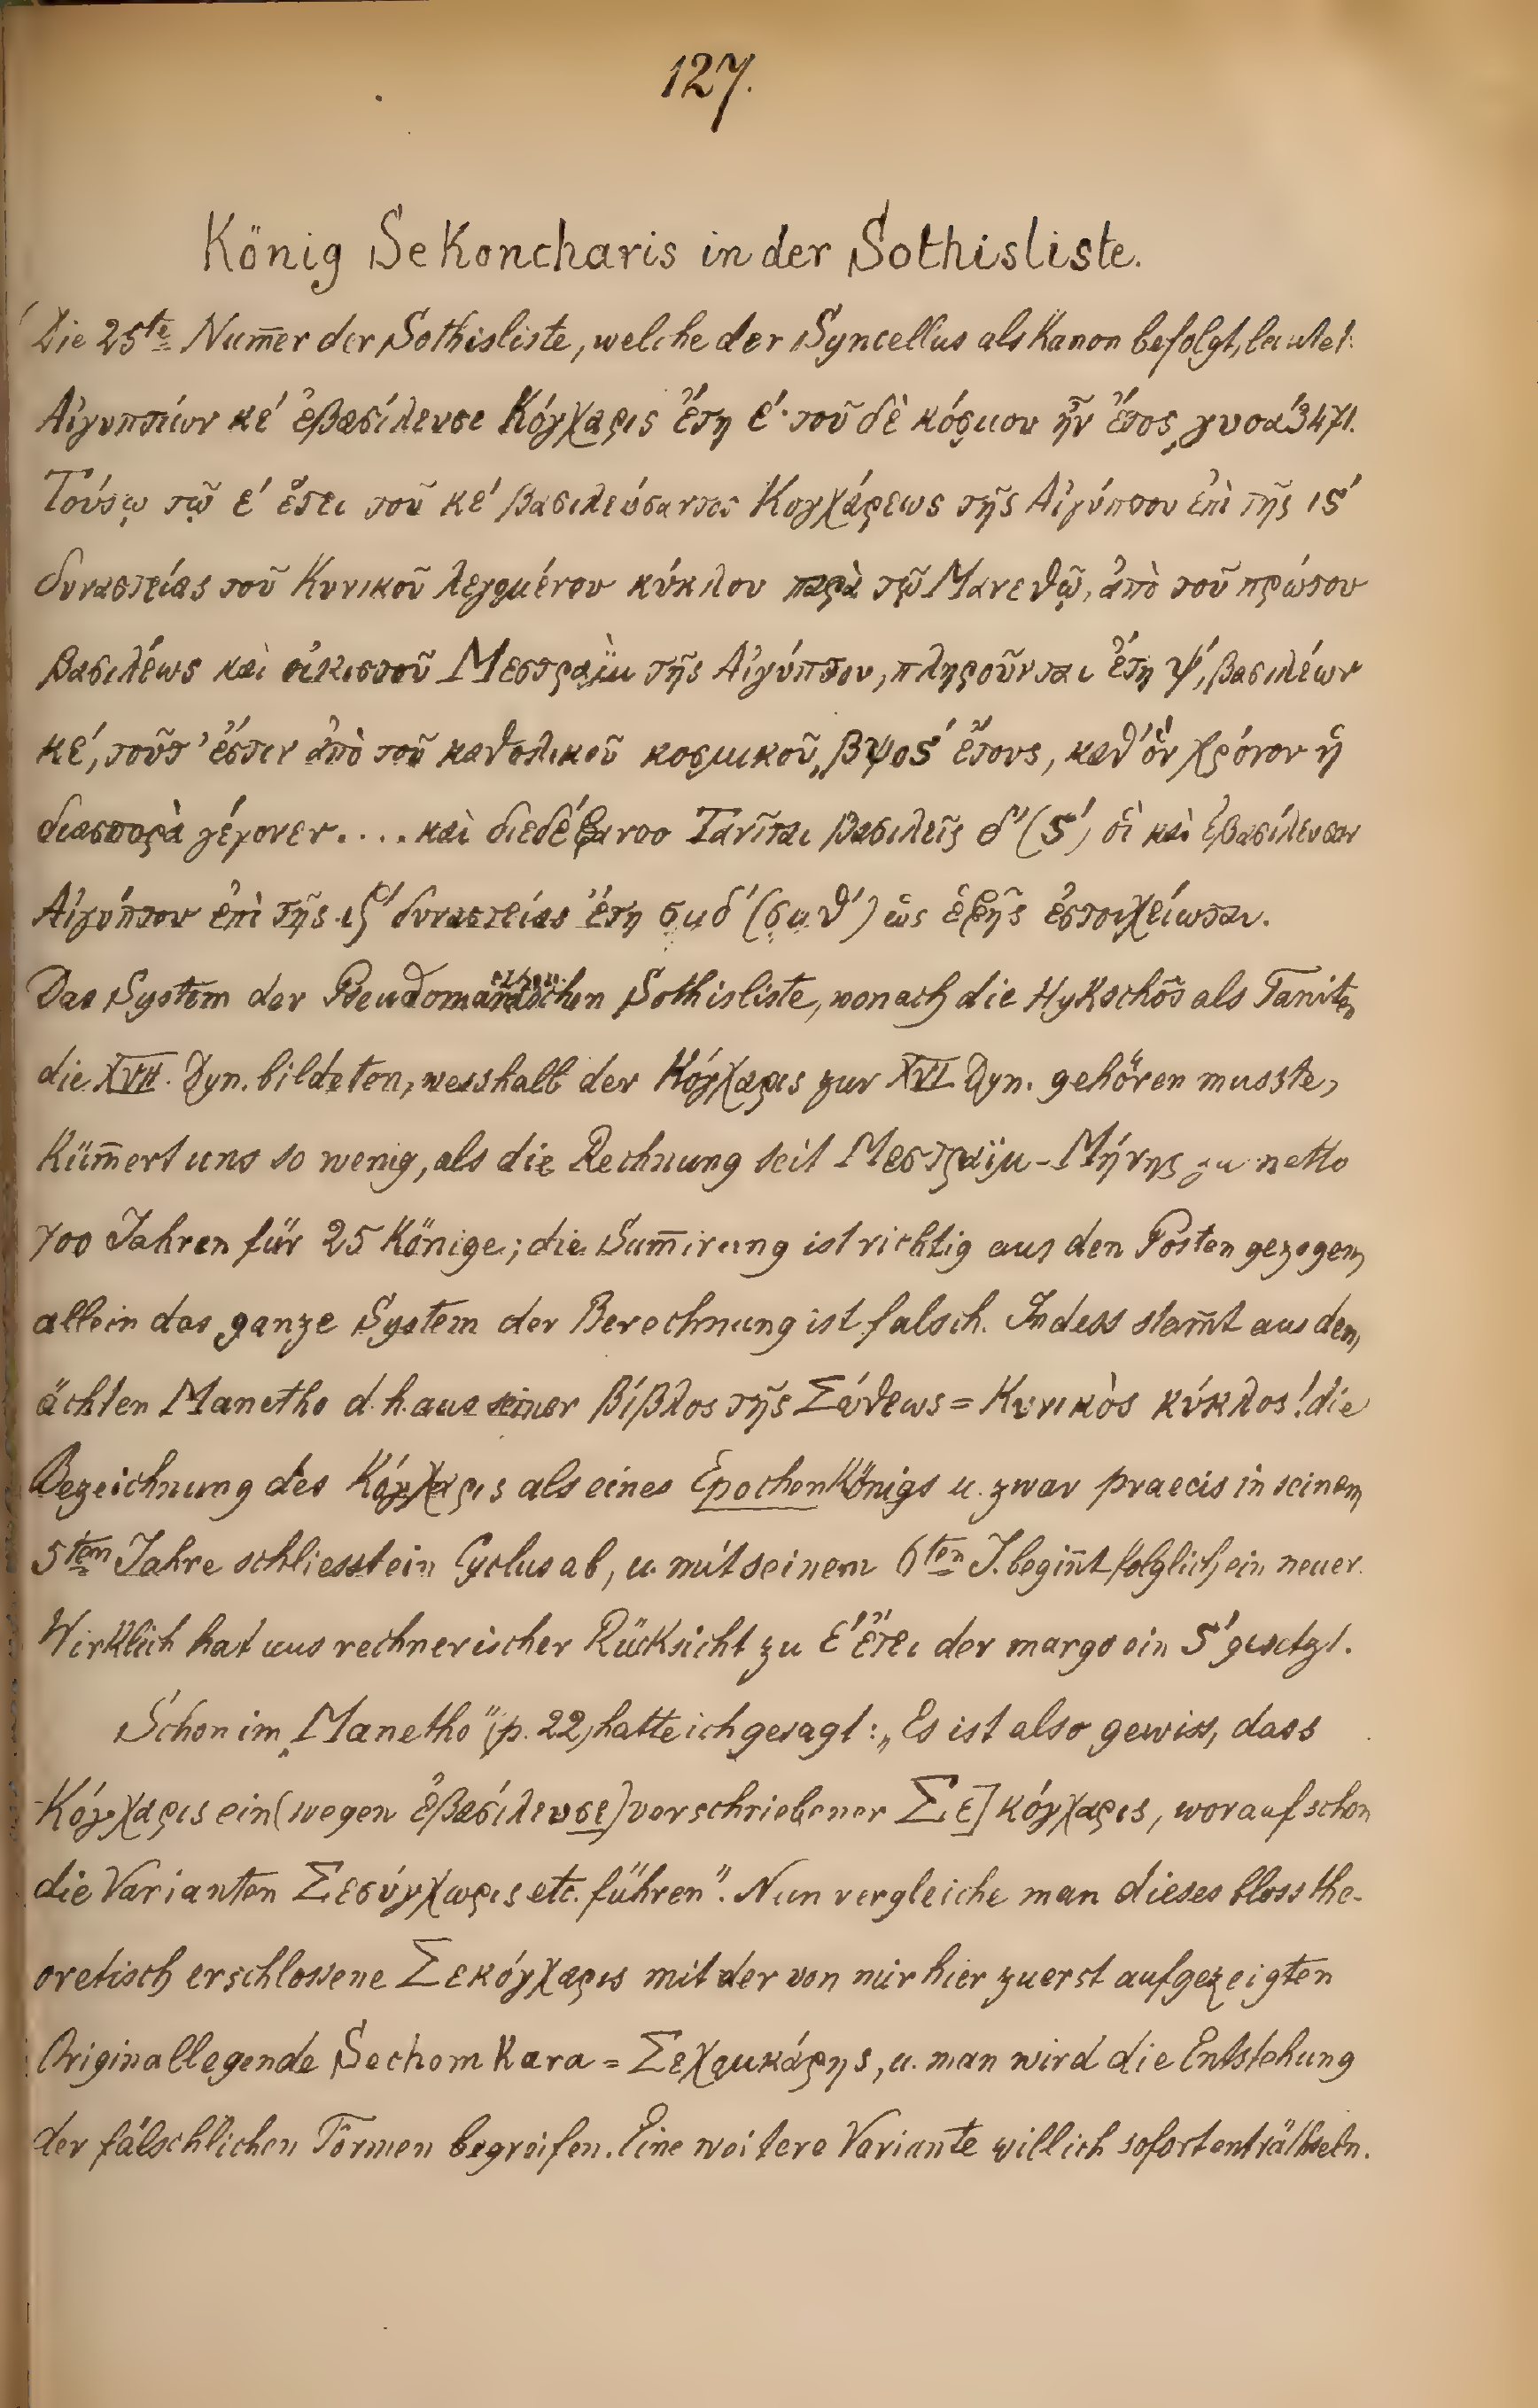 127.
König SeKoncharis in der Sothisliste.
Die 25te Num̄er der Sothisliste, welche der Syncellus als Kanon befolgt, lautet:
Αἰγυπτίων κέ ἐβασίλευσε Κόγχαρις ἔτη έ· τοῦ δὲ κόσμου ἦν ἔτος ͵γυοά 3471.
Τούτῳ τῷ έ ἔτει τοῦ κέ βασιλεύσαντος Κογχάρεως τῆς Αἰγύπτου ἐπὶ τῆς ις´
δυναστείας τοῦ Κυνικοῦ λεγομένου κύκλου παρὰ τῷ Μανεθῷ, ἀπὸ τοῦ πρώτου
βασιλέως καὶ οἰκιστοῦ Μεστραῒμ τῆς Αἰγύπτου, πληροῦνται ἔτη ψ´, βασιλέων
κέ, τοῦτ' ἔστιν ἀπὸ τοῦ καθολικοῦ κοσμικοῦ ͵βψος´ ἔτους, καθ' ὃν χρόνον ἡ
διασπορὰ γέγονεν.... καὶ διεδέξαντο Τανῖται βασιλεῖς δ' (ς´) οἳ καὶ ἐβασίλευσαν
Αἰγύπτου ἐπὶ τῆς ιζ´ δυναστείας ἔτη σμδ´ (σμθ´) ὡς ἑξῆς ἐστοιχείωται.
Das System der Pseudomanethonischen Sothisliste, wonach die Hykschôs als Taniten
die XVII. Dyn. bildeten, wesshalb der Κόγχαρις zur XVI Dyn. gehören musste,
Küm̄ert uns so wenig, als die Rechnung seit Μεστραϊμ-Μήνης zu netto
700 Jahren für 25 Könige; die Sum̄irung ist richtig aus den Posten gezogen,
allein das ganze System der Berechnung ist falsch. Indess stam̄t aus dem
ächten Manetho d.h. aus seiner βίβλος τῆς Σώθεως = Κυνικὸς κύκλος! die
Bezeichnung des Κόγχαρις als eines EpochenKönigs u. zwar praecis in seinem
5tem Jahre schliesst ein Cyclus ab, u. mit seinem 6ten J. begin̄t folglich ein neuer.
Wirklich hat aus rechnerischer Rücksicht zu έ ἔτει der margo ein ς´ gesetzt.
Schon im „Manetho" (p. 22) hatte ich gesagt: „Es ist also gewiss, dass
Κόγχαρις ein (wegen ἐβασίλευσε) verschriebener Σε] κόγχαρις, worauf schon
die Varianten Σεσόγχωρις etc. führen". Nun vergleiche man dieses bloss the-
oretisch erschlossene Σεκόγχαρις mit der von mir hier zuerst aufgezeigten
Originallegende Sechom Kara = Σεχομκάρης, u. man wird die Entstehung
der fälschlichen Formen begreifen. Eine weitere Variante will ich sofort enträthseln.